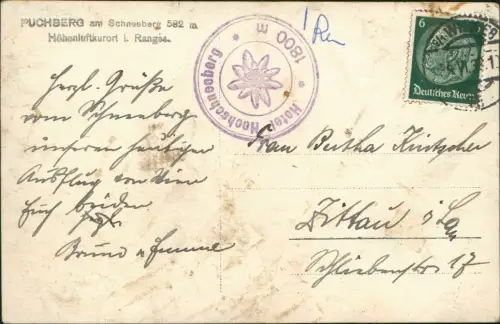 PUCHBERG am Schneeberg 582 m
Höhenluftkurort i. Ranges.
Hotel Hochschneeberg
1800 m
6
Deutsches Reich
Herzl. Grüße
vom Schneeberg
unseren heutigen
Ausflug von Wien
Euch beiden
Frau Bertha Kintscher
Zittau i/Sa
Schliebenstr. 17